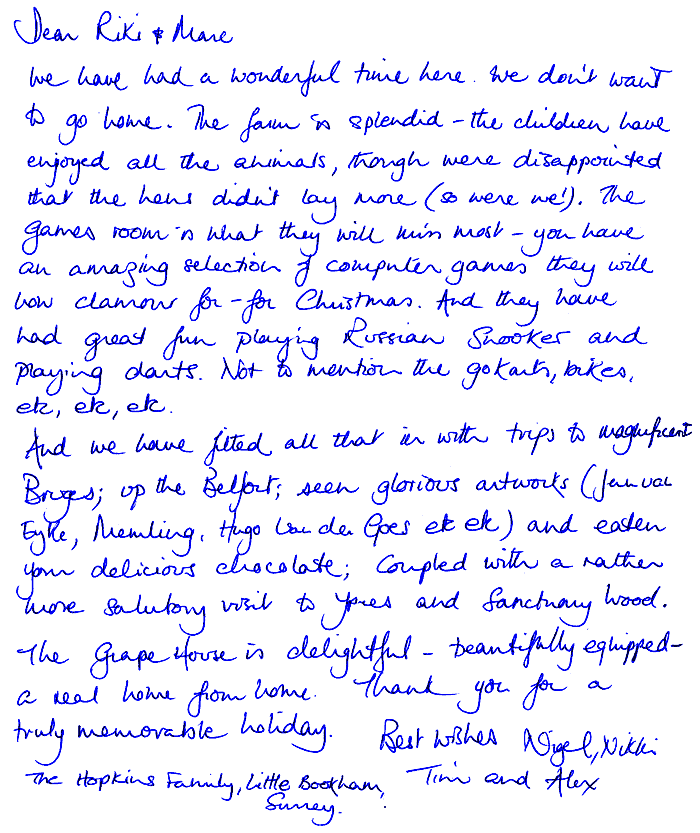 Dear Riki & Marc
We have had a wonderful time here. We don't want
to go home. The farm is splendid - the children have
enjoyed all the animals, though were disappointed
that the hens didn't lay more (so were we!). The
games room is what they will miss most - you have
an amazing selection of computer games they will
now clamour for - for Christmas. And they have
had great fun playing Russian Snooker and
playing darts. Not to mention the gokarts, bikes,
etc, etc, etc.
And we have fitted all that in with trips to magnificent
Bruges; up the Belfort; seen glorious artworks (Jan van
Eyke, Memling, Hugo Van der Goes etc etc) and eaten
your delicious chocolate; Coupled with a rather
more salutory visit to Ypres and Sanctuary Wood.
The Grape House is delightful - beautifully equipped -
a real home from home. Thank you for a
truly memorable holiday. Best wishes Nigel, Nikki
The Hopkins Family, Little Bookham, Tim and Alex
Surrey.